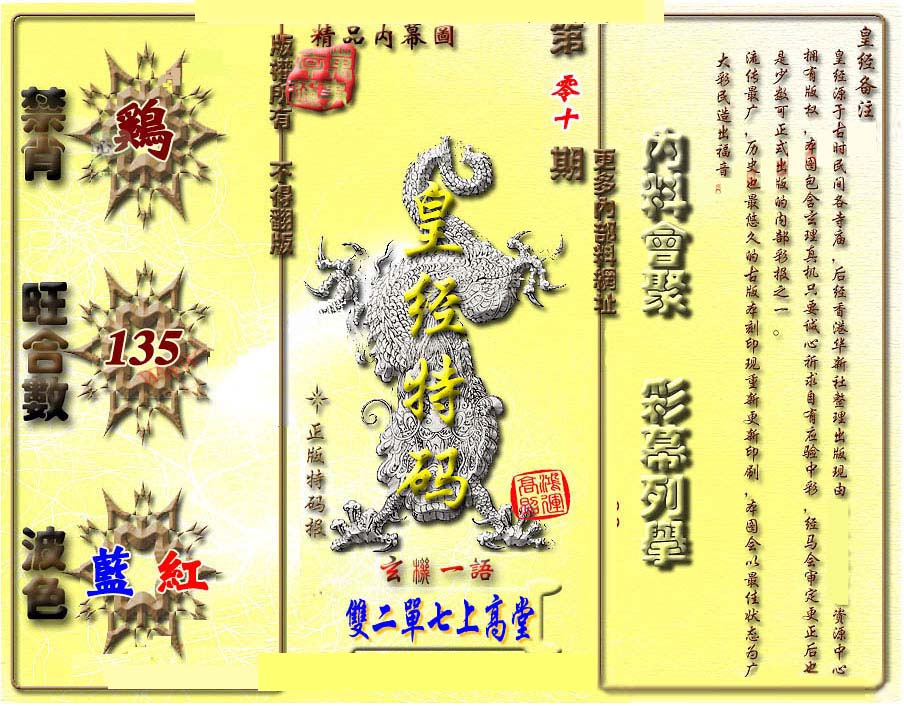 禁肖
鷄
旺合數
135
波色
藍 紅
版權所有 不得翻版
精品內幕圖
第
零十
期
皇经特码
正版特码报
鴻運高照
玄機一語
雙二單七上高堂
更多內部料網址
內料會聚 彩幕列舉
皇经备注
皇经源于古时民间各寺庙，后经香港华新社整理出版现由 资源中心
拥有版权，本图包含玄理真机只要诚心祈求自有应验中彩，经马会审定更正后也
是少数可正式出版的内部彩报之一。
流传最广，历史也最悠久的古版本刻印现重新更新印刷，本图会以最佳状态为广
大彩民造出福音